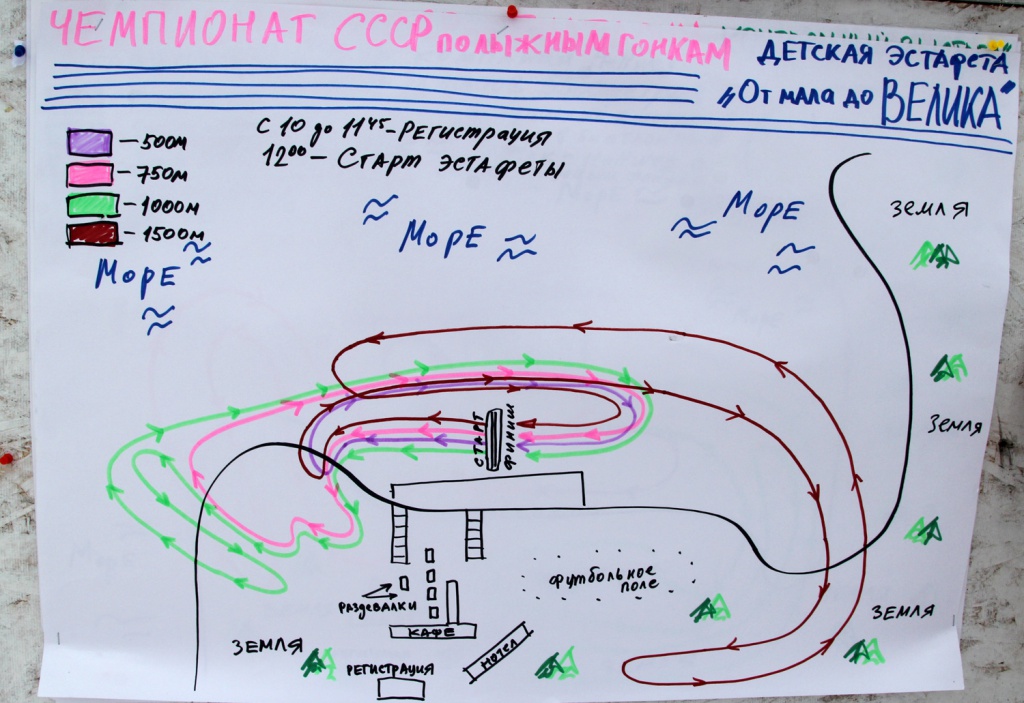 ЧЕМПИОНАТ СССР ПО ЛЫЖНЫМ ГОНКАМ
ДЕТСКАЯ ЭСТАФЕТА
„От мала до ВЕЛИКА"
— 500м
— 750м
— 1000м
— 1500м
С 10 до 11 45 - РЕГИСТРАЦИЯ
12 00 - СТАРТ ЭСТАФЕТЫ
МОРЕ
МОРЕ
МОРЕ
ЗЕМЛЯ
СТАРТ
ФИНИШ
ЗЕМЛЯ
ФУТБОЛЬНОЕ
ПОЛЕ
РАЗДЕВАЛКИ
КАФЕ
ЗЕМЛЯ
ЗЕМЛЯ
РЕГИСТРАЦИЯ
HOTEL